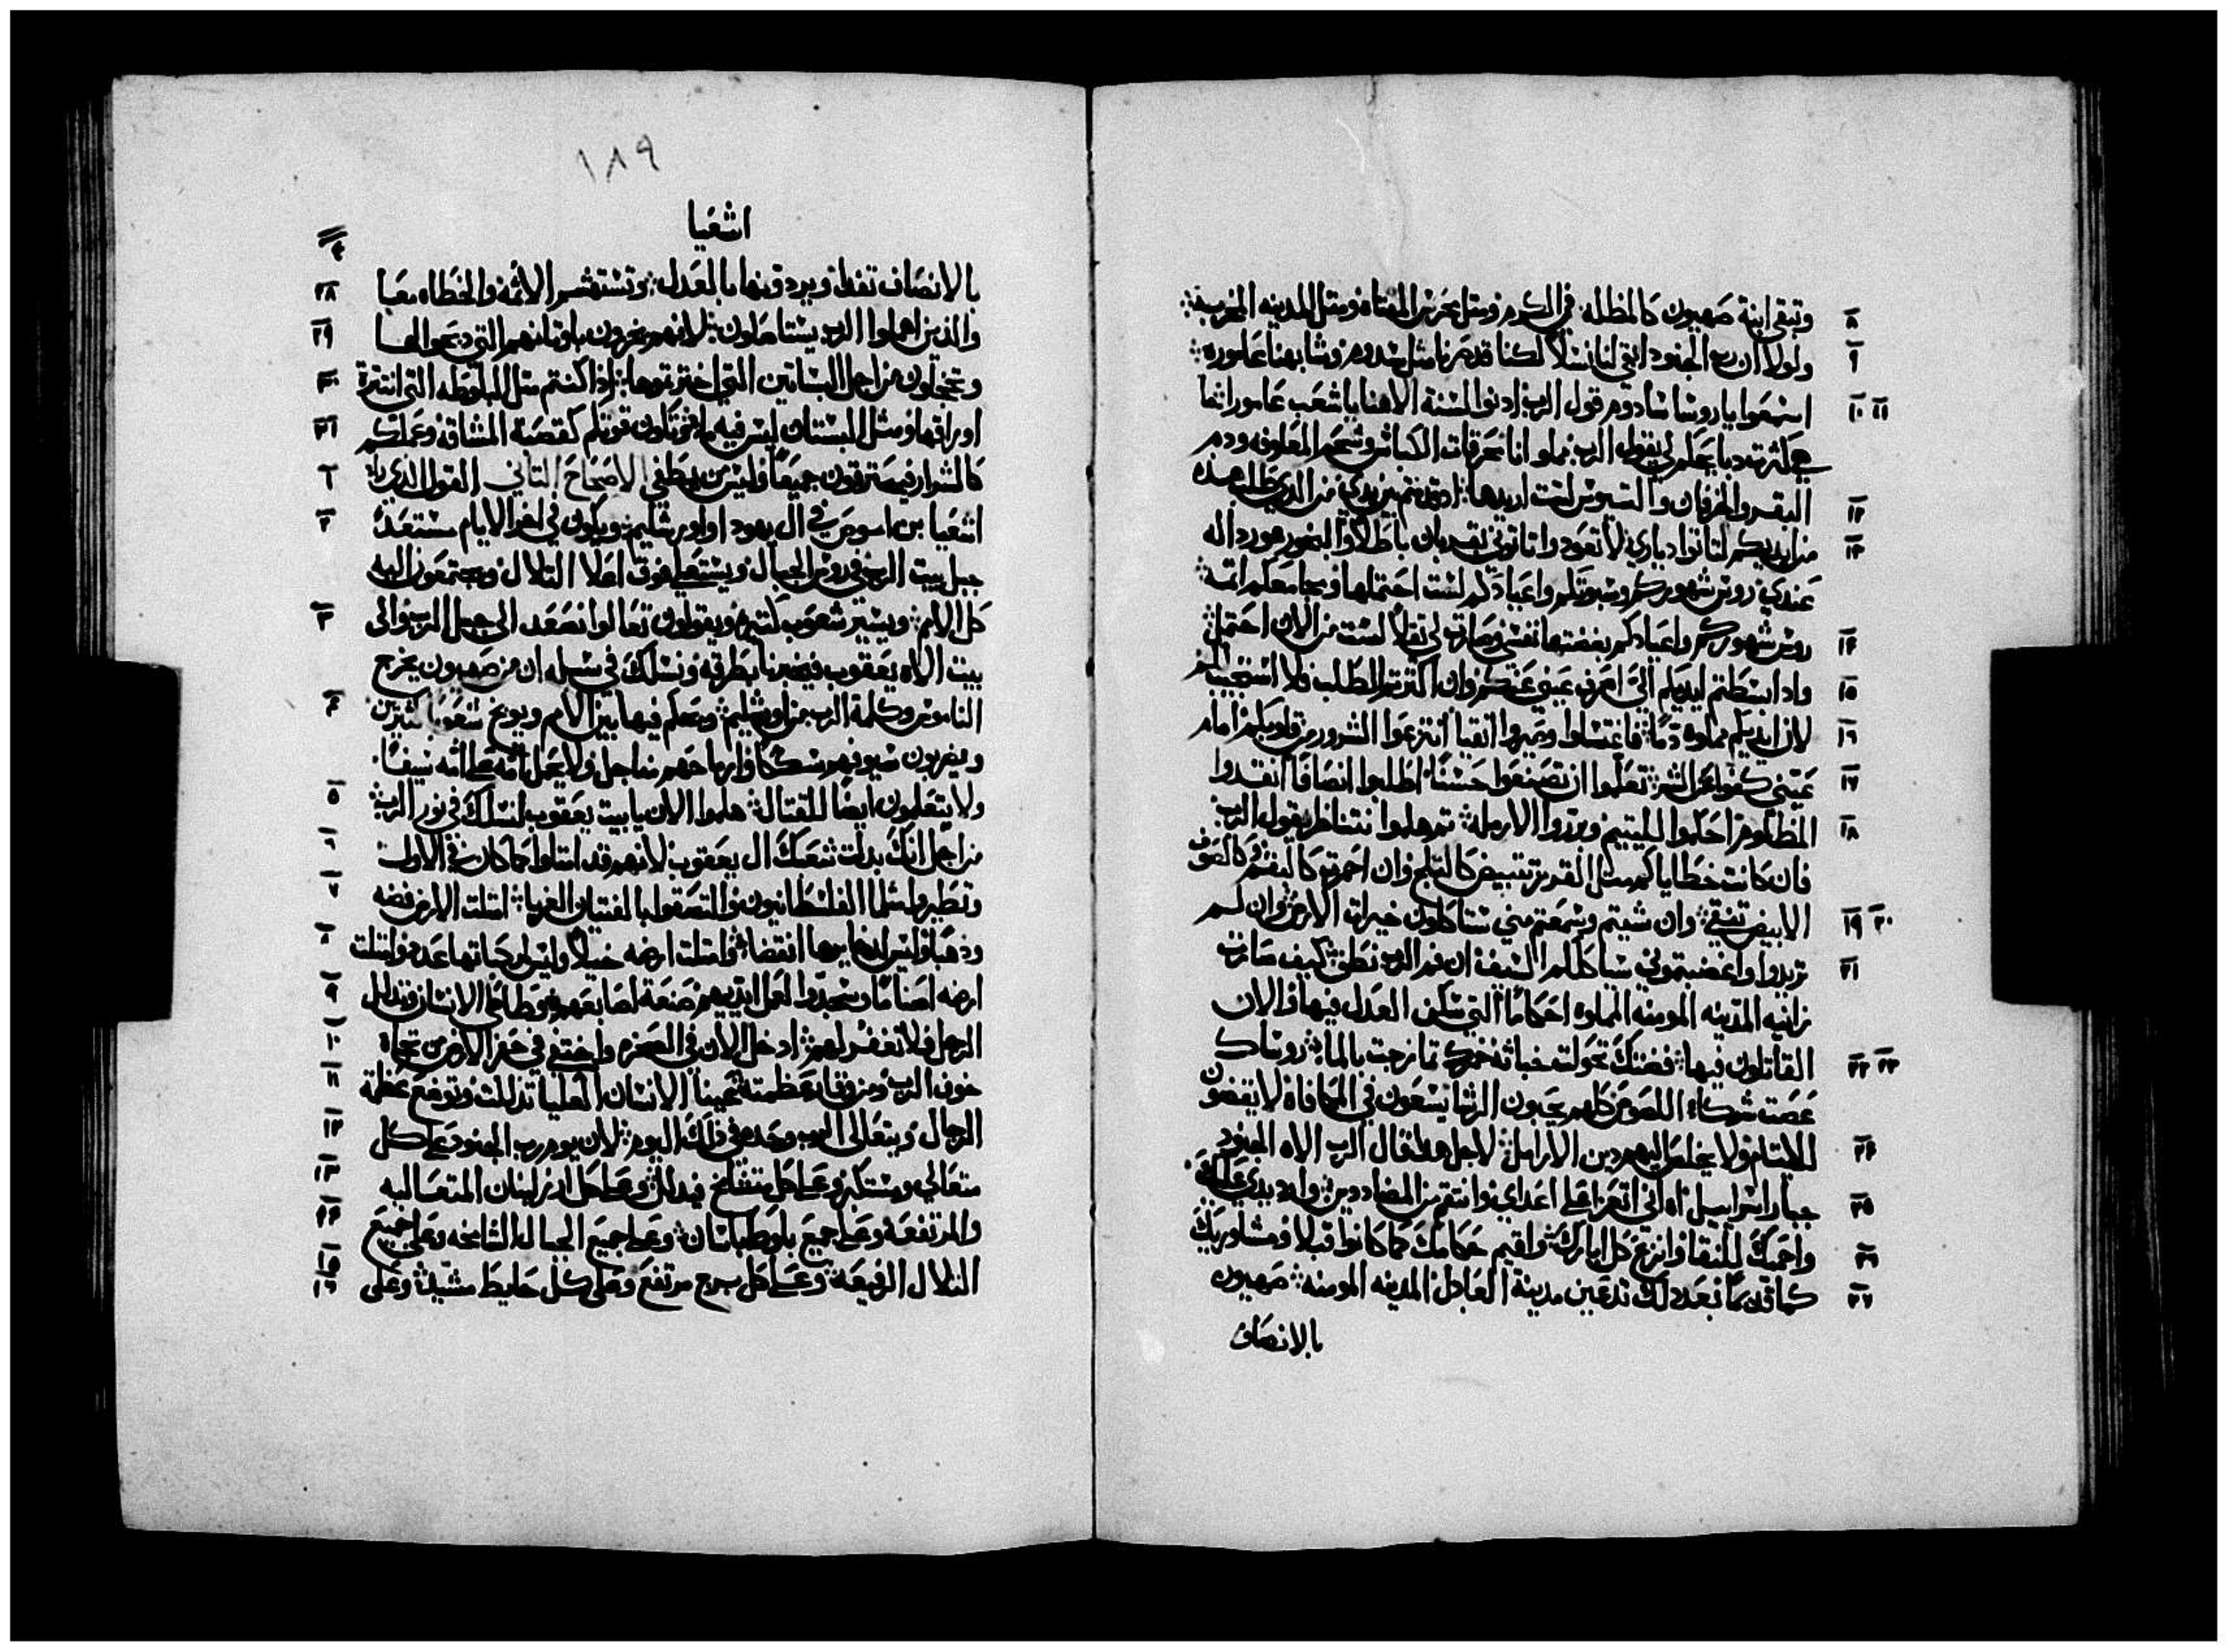 ٨ وتبقى ابنة صهيون كالمظله في الكرم ومثل عرش المقتاه ومثل المدينه المخربه
٩ ولولا ان رب الجنود ابقي لنا نسلاً لكنا قد صرنا مثل سدوم وشابهنا عاموره
١٠ اسمعوا يا روسا سادوم قول الرب ادنوا لسنة الاهنا يا شعب عامورا لما
١١ هي كثرت دبايحكم لي يقول الرب مملو انا محرقات الكباش وشحم المعلوفه ودم
البقر والخرفان والتيوس لست اريدها اذا قدمتم بين يدي من الدي طلب هده
١٢ من ايديكم لتاتوا دياري لا تعودوا تاتوني بقربان باطلا والبخور هو ردالة
١٣ عندي روس شهوركم وسبوتكم واعيادكم لست احتملها ومجامعكم اتمة
١٤ روس شهوركم واعيادكم بغضتها نفسي وصارت لي ثقلاً لست من الان احتمل
١٥ وادا بسطتم ايديكم الىّ اصرف عيني عنكم وان اكثرتم الطلب فلا استجيب لكم
١٦ لان ايديكم مملوه دماً فاغتسلوا وصيروا انقيا انتزعوا الشرور من قلوبكم امام
١٧ عيني كفوا عن الشر تعلموا ان تصنعوا حسناً اطلبوا انصافاً انقدوا
١٨ المظلوم احكموا لليتيم وبرروا الارمله تم هلموا نتناظر يقول الرب
فان كانت خطاياكم مثل القرمز تبيض كالتلج وان احمرت كالبقم كالصوف
١٩ ٢٠ الابيض تنقي وان شيتم وسمعتم مني ستاكلون خيرات الارض وان لم
٢١ تريدوا واغضبتموني سياكلكم السيف ان فم الرب نطق كيف صارت
زانيه المدينه المومنه المملوه احكاماً التي سكن العدل فيها والان
٢٢ ٢٣ القاتلون فيها فضتك تحولت خباثة خمرك تمازجت بالما روساك
عصت شركاء اللصوص كلهم يحبون الرشا يسعون في المكافاة لا يقضون
٢٤ للايتام ولا يخلص اليهم دين الارامل لاجل هدا قال الرب الاه الجنود
٢٥ جبار اسراييل اه اني اتعزا على اعداي وانتقم من المضاددين وارد يدي عليك
٢٦ واحميك للنقا وانزع كل ابارك واقيم حكامك كما كانوا قبلا ومشاوريك
٢٧ كما قديماً بعد دلك تدعين مدينة العادل المدينه المومنه صهيون
بالانصاف
١٨٩
اشعيا
٢٨ بالانصاف تفدا ويردونها بالعدل وتستهشم الاثمة والخطاه معا
٢٩ والذين اهملوا الرب يستاصلون لانهم يخزون باوثانهم التي دبحوا لها
٣٠ وتخجلون من اجل البساتين التي اخترتموها اذا كنتم مثل البلوطه التي انتترة
٣١ اوراقها ومثل البستان ليس فيه ما فتكون قوتكم كقصبة المشاقة وعملكم
٢ كالشرار فيحترقون جميعاً وليس من يطفي الاصحاح التاني القول الذي راه
٢ اشعيا بن عاموص في ال يهودا واورشليم ويكون في اخر الايام مستعد
جبل بيت الرب في روس الجبال ويستعلي فوق اعلا التلال ويجتمعون اليه
٣ كل الامم ويسير شعوب كتيره ويقولون تعالوا نصعد الى جبل الرب والى
بيت الاه يعقوب فيخبرنا بطرقه ونسلك في سبله ان من صهيون يخرج
٤ الناموس وكلمة الرب من اورشليم ويحكم فيها بين الامم ويوبخ شعوباً كثيرين
ويضربون سيوفهم سككاً وارماحهم مناجل ولا يحمل امه على امه سيفاً
٥ ولا يتعلمون ايضاً للقتال هلموا الان يا بيت يعقوب لنسلك في نور الرب
٦ من اجل انك بدلت شعبك ال يعقوب لانهم قد امتلوا كما كان في الاول
٧ وتطيروا مثل الفلسطانيون والتصقوا بالفتيان الغربا امتلت الارض فضه
٨ ودهبا وليس لدخايرها انقضا وامتلت ارضه خيلاً وليس لمركباتها عدد وامتلت
٩ ارضه اصناماً وسجدوا لعمل ايديهم صنعة اصابعهم وطاطا الانسان وتدلل
١٠ الرجل فلا تغفر لهم ادخل الان في الصخره واختفي في حفر الارض من تجاه
١١ خوف الرب ومن وقار عظمته عينا الانسان العليا تذللت وتوضع عظمة
١٢ الرجال ويتعالى الرب وحده في دلك اليوم لان يوم رب الجنود على كل
١٣ متعالي ومستكبر وعلى كل متشامخ فيدلل وعلى كل ارز لبنان المتعاليه
١٤ والمرتفعه وعلى جميع بلوط باسان وعلى جميع الجبال الشامخه وعلى جميع
١٥ ١٦ التلال الرفيعة وعلى كل برج مرتفع وعلى كل حايط مشيد وعلى